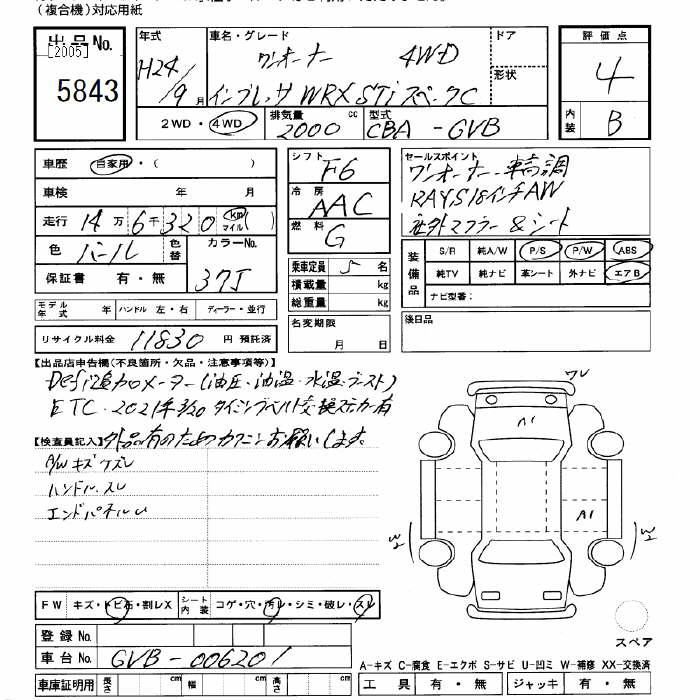 （複合機）対応用紙
出品No.
[2005]
5843
年式
H24/9月
車名・グレード
ワンオーナー 4WD
インプレッサ WRX STi スペックC
ドア
形状
評価点
4
内装
B
2WD・4WD
排気量
2000 cc
型式
CBA-GVB
車歴 自家用・（ ）
車検 年 月
走行 14万6千320 km マイル（ ）
色 パール
色替
カラーNo.
37J
保証書 有・無
シフト F6
冷房 AAC
燃料 G
乗車定員 5 名
積載量 kg
総重量 kg
名変期限
月 日
セールスポイント
ワンオーナー 車高調
RAYS18インチAW
社外マフラー&シート
装備品
S/R 純A/W P/S P/W ABS
純TV 純ナビ 革シート 外ナビ エアB
ナビ型番：
後日品
モデル年式 年 ハンドル 左・右 ディーラー・並行
リサイクル料金 11830 円 預託済
【出品店申告欄（不良箇所・欠品・注意事項等）】
Defi追加メーター（油圧・油温・水温・ブースト）
ETC・2021年3/20 タイミングベルト交換ステッカー有
【検査員記入】外品有のためカクニンお願いします。
A/W キズ スレ
ハンドル スレ
エンドパネルU
ワレ
A1
A1
W2
W2
FW キズ・トビ石・割レX シート内装 コゲ・穴・汚レ・シミ・破レ・スレ
登録No.
車台No. GVB-006201
車庫証明用 長さ cm 幅 cm 高さ cm
スペア
A-キズ C-腐食 E-エクボ S-サビ U-凹ミ W-補修 XX-交換済
工具 有・無 ジャッキ 有・無